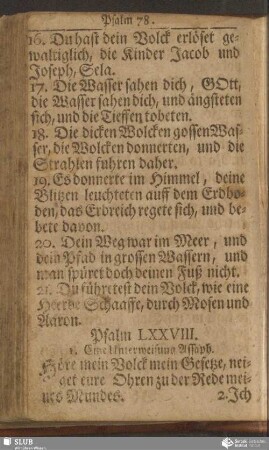 Psalm 78.
16. Du hast dein Volck erlöset ge-
waltiglich, die Kinder Jacob und
Joseph, Sela.
17. Die Wasser sahen dich, GOtt,
die Wasser sahen dich, und ängsteten
sich, und die Tieffen tobeten.
18. Die dicken Wolcken gossen Was-
ser, die Wolcken donnerten, und die
Strahlen fuhren daher.
19. Es donnerte im Himmel, deine
Blitzen leuchteten auff dem Erdbo-
den, das Erdreich regete sich, und be-
bete davon.
20. Dein Weg war im Meer, und
dein Pfad in grossen Wassern, und
man spüret doch deinen Fuß nicht.
21. Du führetest dein Volck, wie eine
Heerde Schaaffe, durch Mosen und
Aaron.
Psalm LXXVIII.
1. Eine Unterweisung Assaph.
Höre mein Volck mein Gesetze, nei-
get eure Ohren zu der Rede mei-
nes Mundes. 2. Ich
SLUB